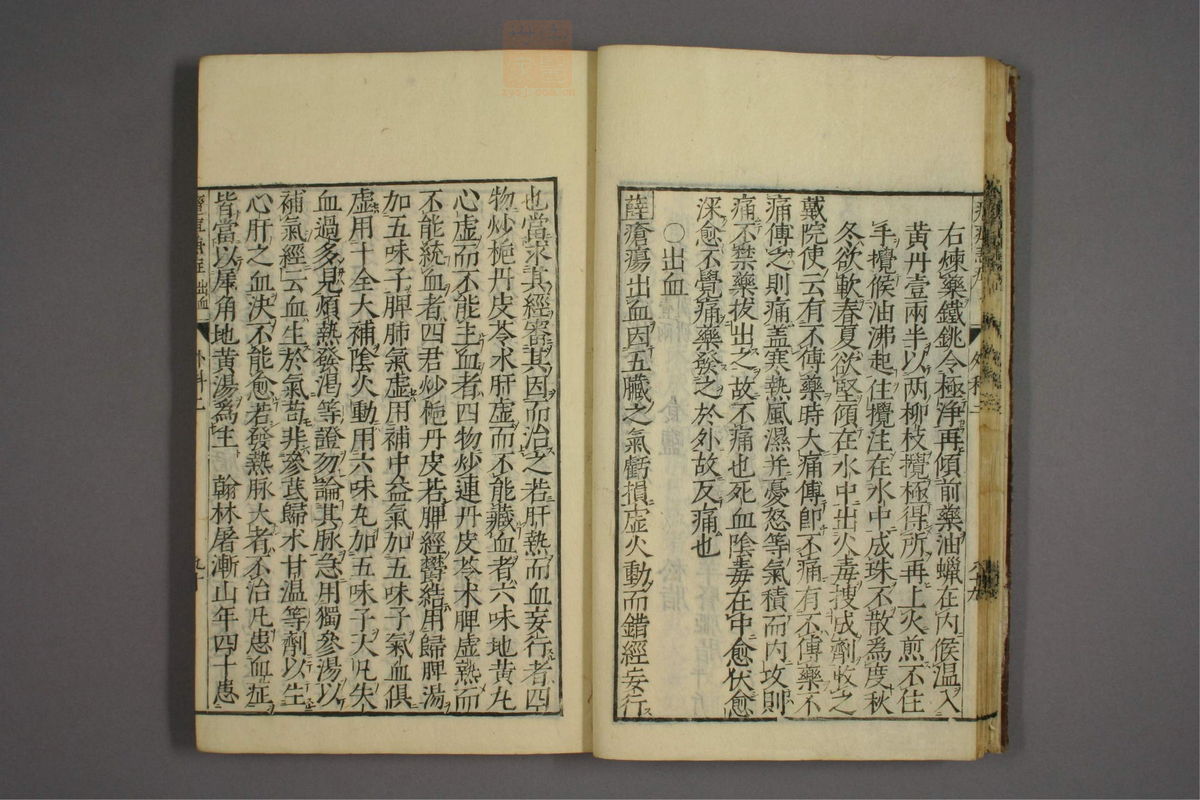 右煉藥鐵銚令極淨再傾前藥油蠟在內候温入
黄丹壹兩半以两柳枝攪極得所再上火煎不住
手攪候油沸起住攪注在水中成珠不散為度秋
冬欲軟春夏欲堅傾在水中出火毒搜成劑收之
戴院使云有不傅藥時大痛傅即不痛有不傅藥不
痛傅之則痛盖寒熱風濕并憂怒等氣積而内攻則
痛不禁藥拔出之故不痛也死血陰毒在中愈伏愈
深愈不覺痛藥發之於外故反痛也
〇出血
薛瘡瘍出血因五臟之氣虧損虚火動而錯經妄行
也當求其經審其因而治之若肝熱而血妄行者四
物炒梔丹皮苓朮肝虚而不能藏血者六味地黄丸
心虚而不能主血者四物炒連丹皮苓朮脾虚熱而
不能統血者四君炒梔丹皮若脾經鬱結用歸脾湯
加五味子脾肺氣虚用補中益氣加五味子氣血俱
虚用十全大補陰火動用六味丸加五味子大凡失
血過多見煩熱發渴等證勿論其脉急用獨參湯以
補氣經云血生於氣苟非參芪歸朮甘温等劑以生
心肝之血決不能愈若發熱脉大者不治凡患血症
皆當以犀角地黄湯為主 翰林屠漸山年四十患
出血
外科二